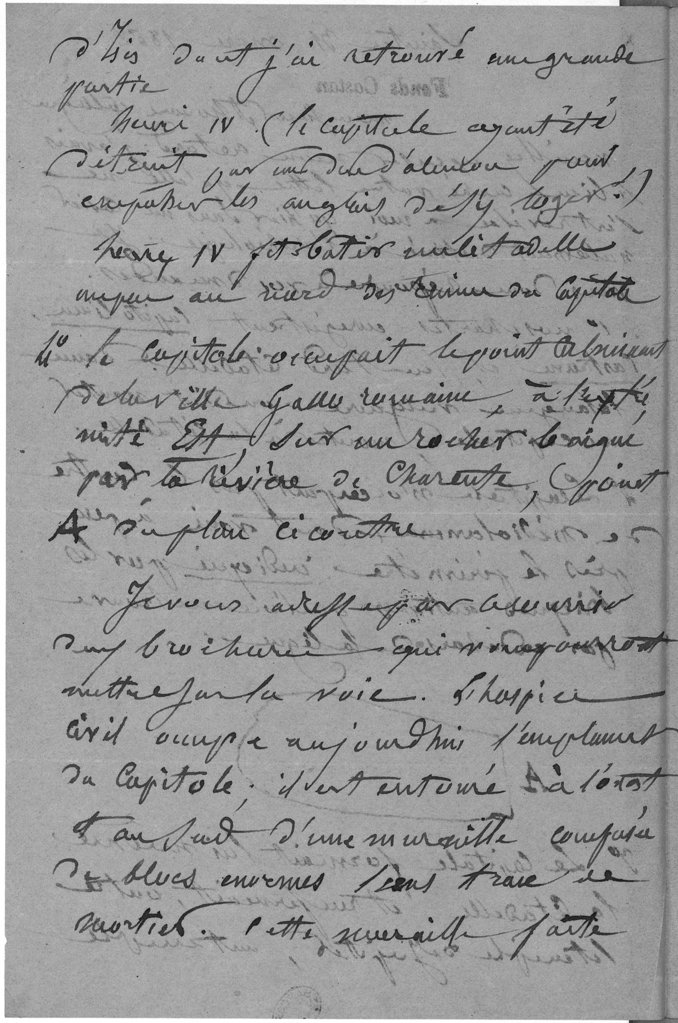 d'Isis dont j'ai retrouvé une grande
partie
henri IV (le capitole ayant été
détruit par un duc d'alencon pour
empêcher les anglais de s'y loger!)
henry IV fit batir une citadelle
un peu au nord des ruines du Capitole
4º le capitole occupait le point culminant
de la ville Gallo romaine, à l'extré
mité Est, sur un rocher baigné
par la rivière de Charente, (point
A du plan ci contre
Je vous adresse par ce courrier
deux brochures qui vous pourront
mettre sur la voie. L'hospice
civil occupe aujourdhui l'emplacemt
du Capitole; il est entouré à l'ouest
et au Sud d'une muraille composée
de blocs enormes sans trace de
mortier. Cette muraille faite
Fonds Castan